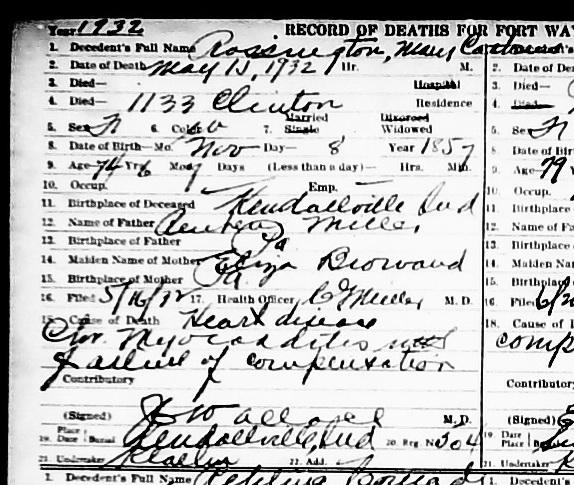 Year 1932 RECORD OF DEATHS FOR FORT WAY
1. Decedent's Full Name Rossington, Mary
2. Date of Death May 15, 1932 Hr. M.
3. Died— Hospital
4. Died— 1133 Clinton Residence
5. Sex F 6. Color W 7. Single Married Widowed Divorced
8. Date of Birth—Mo. Nov Day— 8 Year 1857
9. Age 74 Yrs 6 Mos 7 Days (Less than a day)— Hrs. Min.
10. Occup. Emp.
11. Birthplace of Deceased Kendallville Ind
12. Name of Father Miller
13. Birthplace of Father Pa
14. Maiden Name of Mother Eliza
15. Birthplace of Mother Pa
16. Filed 5/16/32 17. Health Officer Miller M. D.
18. Cause of Death Heart disease
Chr. Myocarditis with
failure of compensation
Contributory
(Signed) M. D.
19. Place Date Burial Kendallville, Ind 20. Reg. No 304
21. Undertaker 22. Add.
1. Decedent's Full Name
2. Date of Dea
3. Died—
4. Died—
5. Sex F
8. Date of Birt
9. Age 79
10. Occup.
11. Birthplace
12. Name of Fa
13. Birthplace
14. Maiden Nam
15. Birthplac
16. Filed 6/2
18. Cause of
comp
Contributory
(Signed)
19. Date Place
21. Undertaker
1. Decedent's